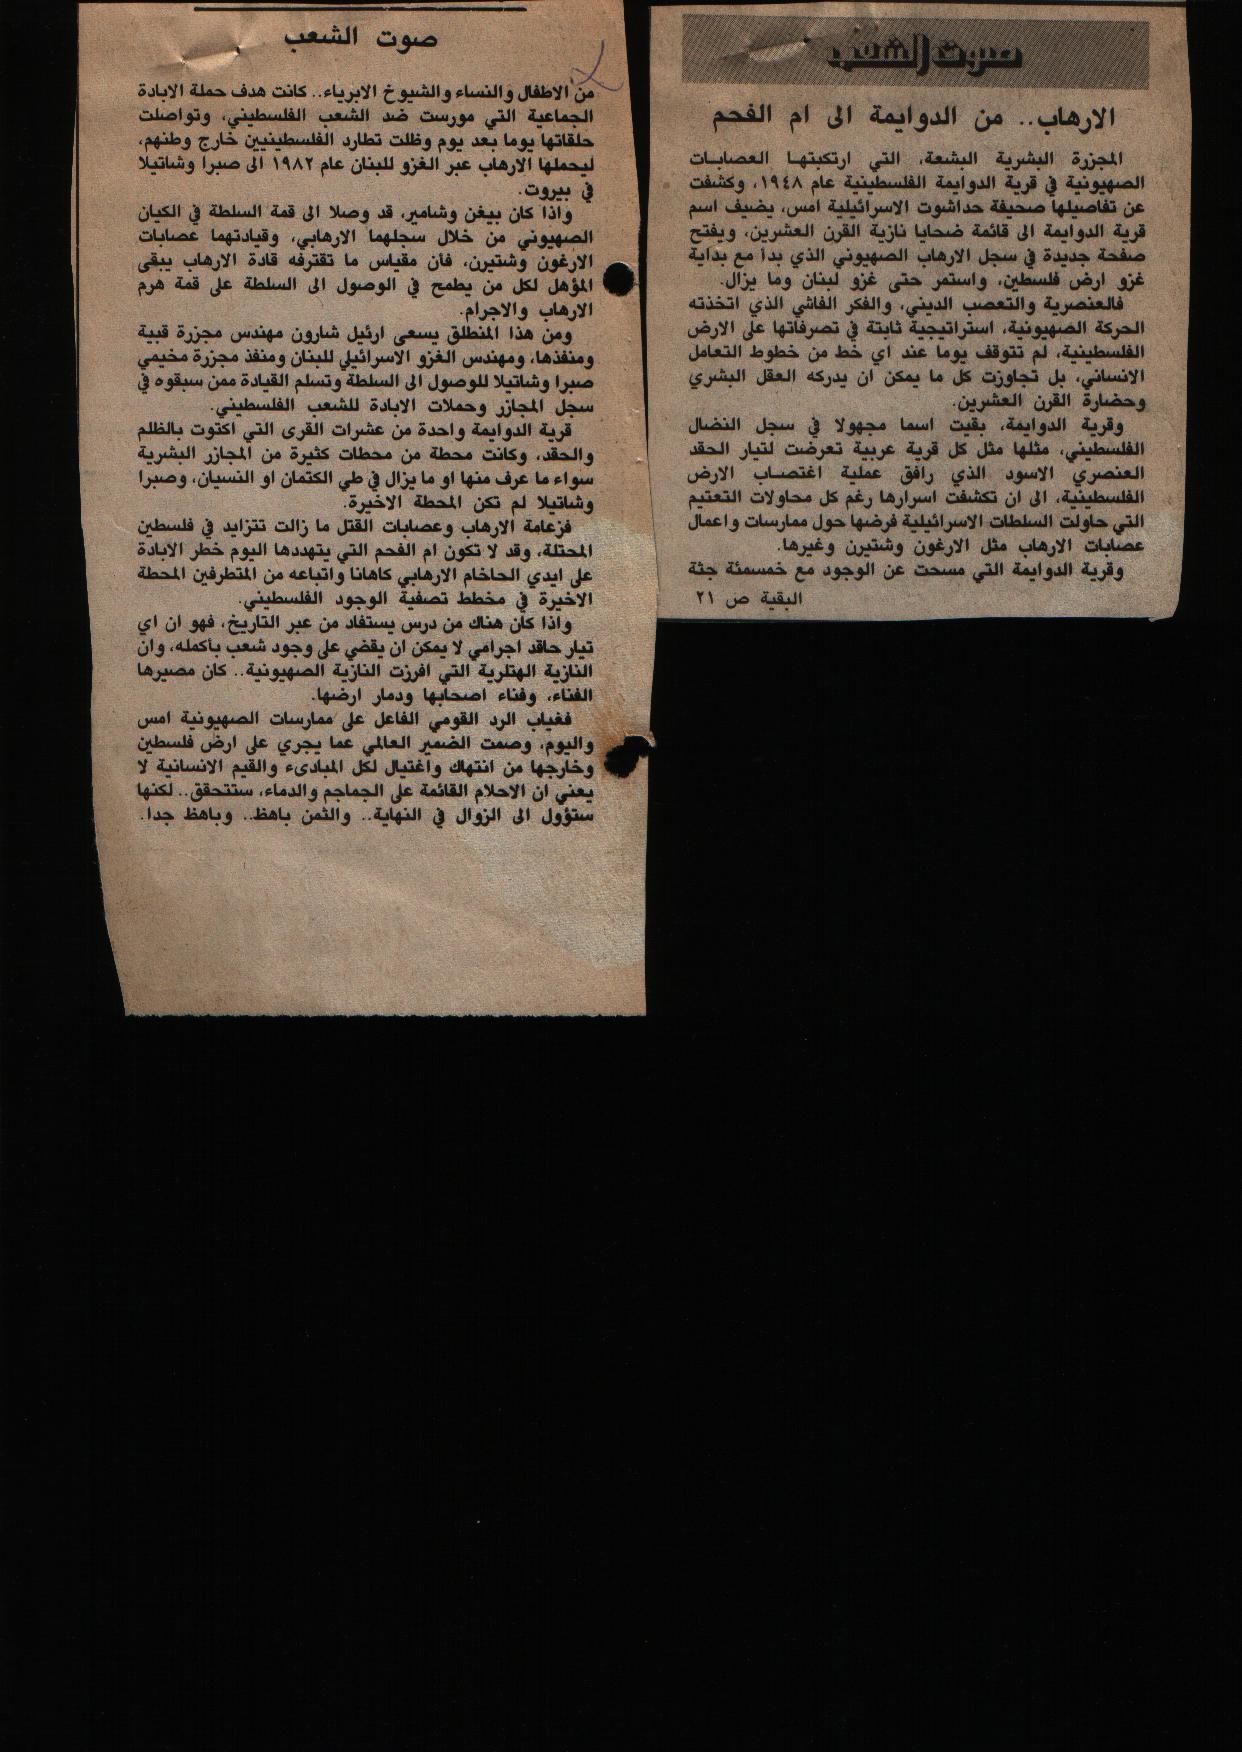 صوت الشعب
الارهاب.. من الدوايمة الى ام الفحم
المجزرة البشرية البشعة، التي ارتكبتها العصابات
الصهيونية في قرية الدوايمة الفلسطينية عام ١٩٤٨، وكشفت
عن تفاصيلها صحيفة حداشوت الاسرائيلية امس، يضيف اسم
قرية الدوايمة الى قائمة ضحايا نازية القرن العشرين، ويفتح
صفحة جديدة في سجل الارهاب الصهيوني الذي بدأ مع بداية
غزو ارض فلسطين، واستمر حتى غزو لبنان وما يزال.
فالعنصرية والتعصب الديني، والفكر الفاشي الذي اتخذته
الحركة الصهيونية، استراتيجية ثابتة في تصرفاتها على الارض
الفلسطينية، لم تتوقف يوما عند اي خط من خطوط التعامل
الانساني، بل تجاوزت كل ما يمكن ان يدركه العقل البشري
وحضارة القرن العشرين.
وقرية الدوايمة، بقيت اسما مجهولا في سجل النضال
الفلسطيني، مثلها مثل كل قرية عربية تعرضت لتيار الحقد
العنصري الاسود الذي رافق عملية اغتصاب الارض
الفلسطينية، الى ان تكشفت اسرارها رغم كل محاولات التعتيم
التي حاولت السلطات الاسرائيلية فرضها حول ممارسات واعمال
عصابات الارهاب مثل الارغون وشتيرن وغيرها.
وقرية الدوايمة التي مسحت عن الوجود مع خمسمئة جثة
البقية ص ٢١
صوت الشعب
من الاطفال والنساء والشيوخ الابرياء.. كانت هدف حملة الابادة
الجماعية التي مورست ضد الشعب الفلسطيني، وتواصلت
حلقاتها يوما بعد يوم وظلت تطارد الفلسطينيين خارج وطنهم،
ليحملها الارهاب عبر الغزو للبنان عام ١٩٨٢ الى صبرا وشاتيلا
في بيروت.
واذا كان بيغن وشامير، قد وصلا الى قمة السلطة في الكيان
الصهيوني من خلال سجلهما الارهابي، وقيادتهما عصابات
الارغون وشتيرن، فان مقياس ما تقترفه قادة الارهاب يبقى
المؤهل لكل من يطمح في الوصول الى السلطة على قمة هرم
الارهاب والاجرام.
ومن هذا المنطلق يسعى ارئيل شارون مهندس مجزرة قبية
ومنفذها، ومهندس الغزو الاسرائيلي للبنان ومنفذ مجزرة مخيمي
صبرا وشاتيلا للوصول الى السلطة وتسلم القيادة ممن سبقوه في
سجل المجازر وحملات الابادة للشعب الفلسطيني.
قرية الدوايمة واحدة من عشرات القرى التي اكتوت بالظلم
والحقد، وكانت محطة من محطات كثيرة من المجازر البشرية
سواء ما عرف منها او ما يزال في طي الكتمان او النسيان، وصبرا
وشاتيلا لم تكن المحطة الاخيرة.
فزعامة الارهاب وعصابات القتل ما زالت تتزايد في فلسطين
المحتلة، وقد لا تكون ام الفحم التي يتهددها اليوم خطر الابادة
على ايدي الحاخام الارهابي كاهانا واتباعه من المتطرفين المحطة
الاخيرة في مخطط تصفية الوجود الفلسطيني.
واذا كان هناك من درس يستفاد من عبر التاريخ، فهو ان اي
تيار حاقد اجرامي لا يمكن ان يقضي على وجود شعب بأكمله، وان
النازية الهتلرية التي افرزت النازية الصهيونية.. كان مصيرها
الفناء، وفناء اصحابها ودمار ارضها.
فغياب الرد القومي الفاعل على ممارسات الصهيونية امس
واليوم، وصمت الضمير العالمي عما يجري على ارض فلسطين
وخارجها من انتهاك واغتيال لكل المبادىء والقيم الانسانية لا
يعني ان الاحلام القائمة على الجماجم والدماء، ستتحقق.. لكنها
ستؤول الى الزوال في النهاية.. والثمن باهظ.. وباهظ جدا.